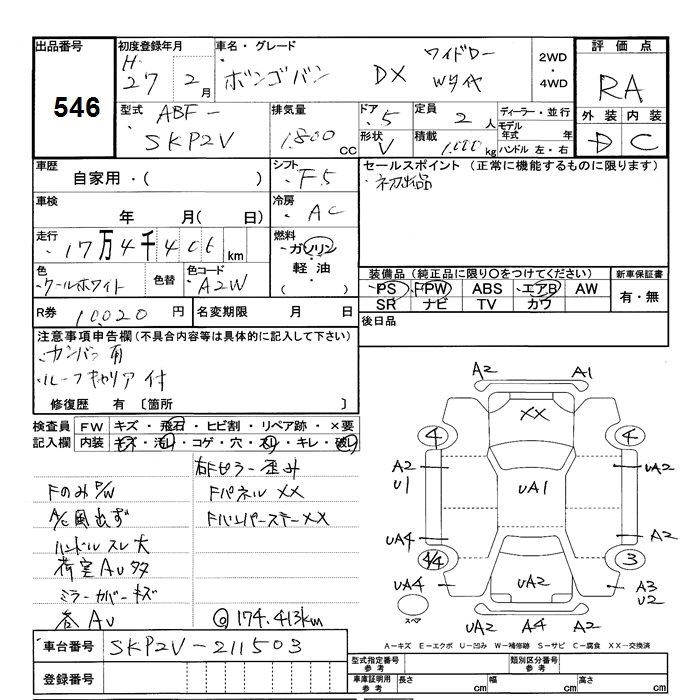 出品番号 初度登録年月 車名・グレード ワイドロー 2WD 評価点
546 H 27 2月 ボンゴバン DX 4WD RA
外装 内装
型式 ABF- 排気量 ドア 5 定員 2人 ディーラー・並行 D C
SKP2V 1.800cc 形状 V 積載 1.000kg モデル年式 年
ハンドル 左・右
車歴 シフト セールスポイント (正常に機能するものに限ります)
自家用・( ) F5 初出品
車検 冷房
年 月( 日) AC
走行 燃料
17万4千4 km ガソリン
色 色替 色コード 軽油 装備品(純正品に限り○をつけてください) 新車保証書
クールホワイト A2W ( ) PS PW ABS エアB AW 有・無
SR ナビ TV カワ
R券 10020円 名変期限 月 日 後日品
注意事項申告欄(不具合内容等は具体的に記入して下さい)
カンバン有
ルーフキャリア付
修復歴 有 〔箇所 〕
検査員 FW キズ・飛石・ヒビ割・リペア跡・×要
記入欄 内装 キズ・汚れ・コゲ・穴・スレ・キレ・破れ
右Fピラー歪み
FのみP/W Fパネル XX
A/C風出ず Fバンパーステー XX
ハンドル スレ大
荷室AU多
ミラーカバーキズ
各AU @174.413km
A2 A1
XX
4 4
A2 UA2
U1 UA1
UA4 A2
4/4 3
UA4 UA2 A3
U2
スペア UA2 A4 A2
A-キズ E-エクボ U-凹み W-補修跡 S-サビ C-腐食 XX-交換済
車台番号 SKP2V-211503
型式指定番号 参考 類別区分番号 参考
登録番号 車庫証明用 参考 長さ cm 幅 cm 高さ cm